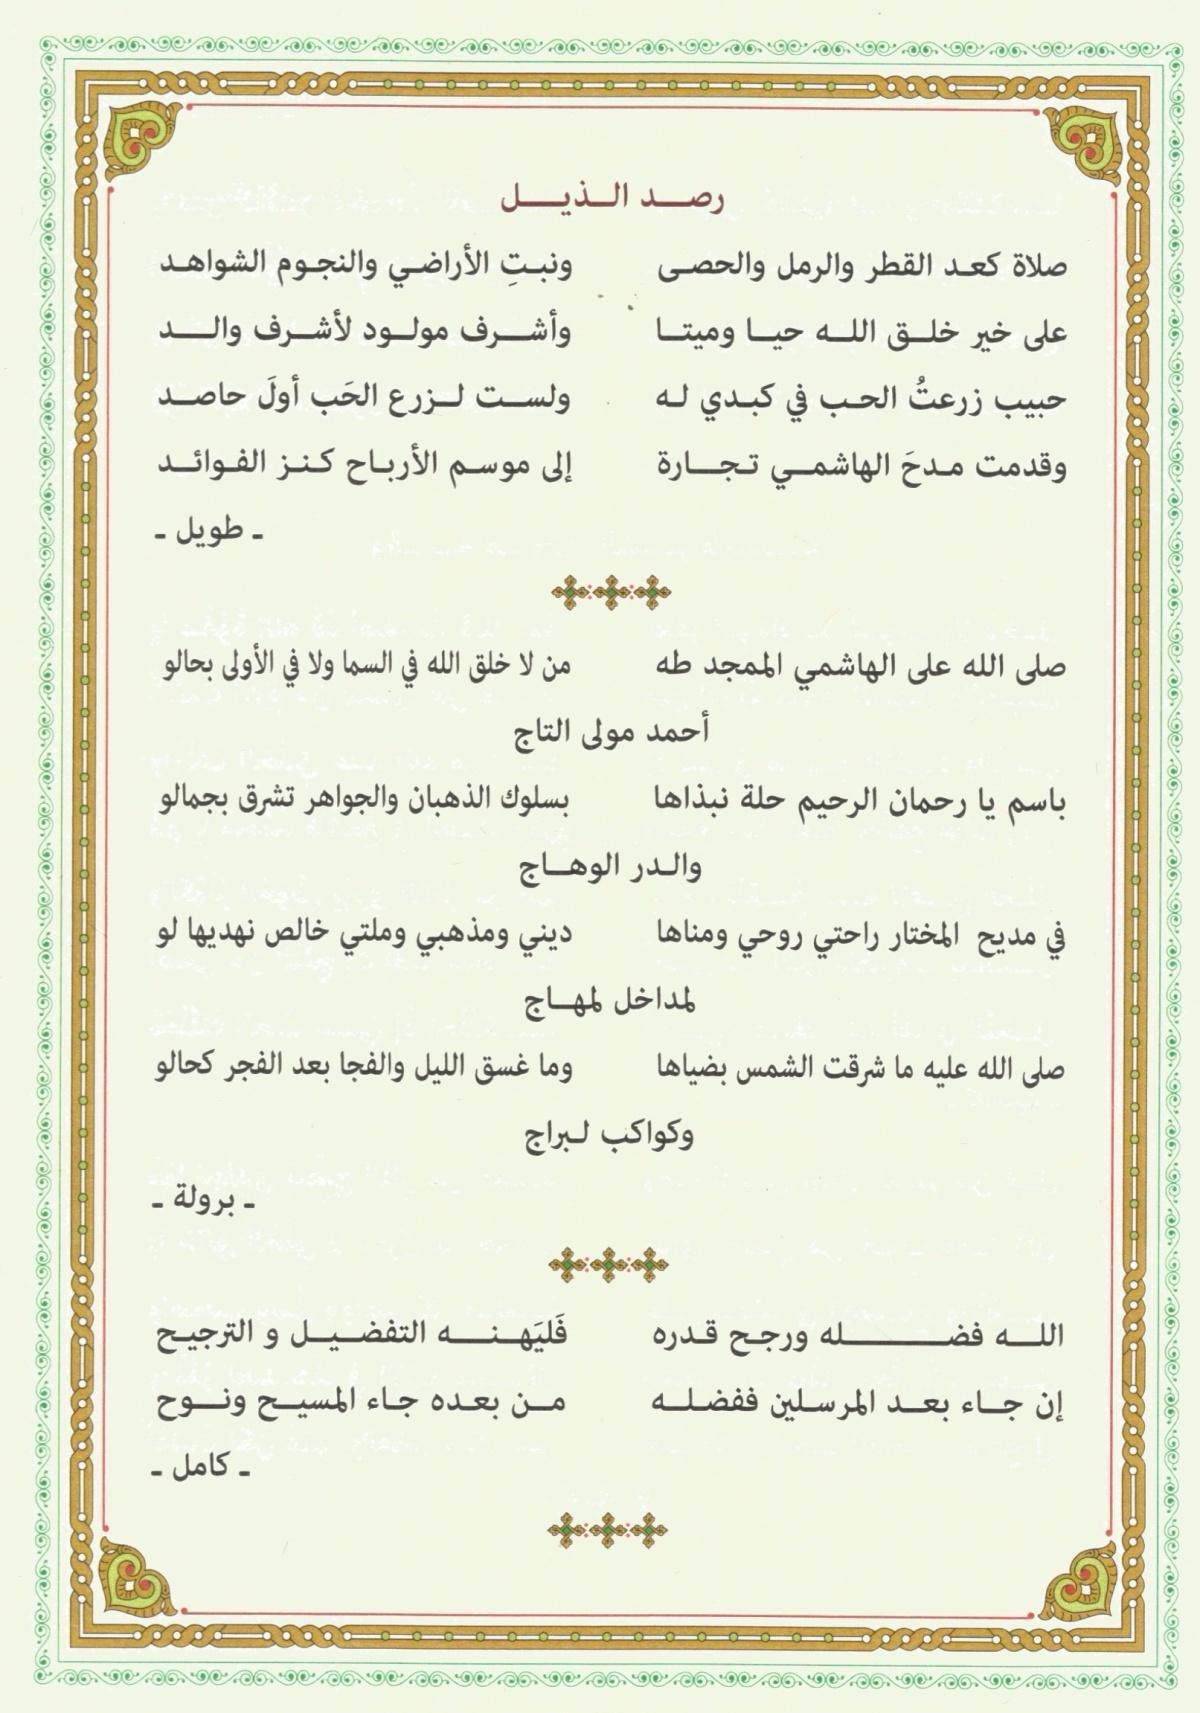 رصد الذيل
صلاة كعد القطر والرمل والحصى ونبتِ الأراضي والنجوم الشواهد
على خير خلق الله حيا وميتا وأشرف مولود لأشرف والد
حبيب زرعتُ الحب في كبدي له ولست لزرع الحَب أولَ حاصد
وقدمت مدحَ الهاشمي تجارة إلى موسم الأرباح كنز الفوائد
ـ طويل ـ
صلى الله على الهاشمي الممجد طه من لا خلق الله في السما ولا في الأولى بحالو
أحمد مولى التاج
باسم يا رحمان الرحيم حلة نبذاها بسلوك الذهبان والجواهر تشرق بجمالو
والدر الوهاج
في مديح المختار راحتي روحي ومناها ديني ومذهبي وملتي خالص نهديها لو
لمداخل لمهاج
صلى الله عليه ما شرقت الشمس بضياها وما غسق الليل والفجا بعد الفجر كحالو
وكواكب لبراج
ـ برولة ـ
الله فضله ورجح قدره فَليَهنه التفضيل و الترجيح
إن جاء بعد المرسلين ففضله من بعده جاء المسيح ونوح
ـ كامل ـ